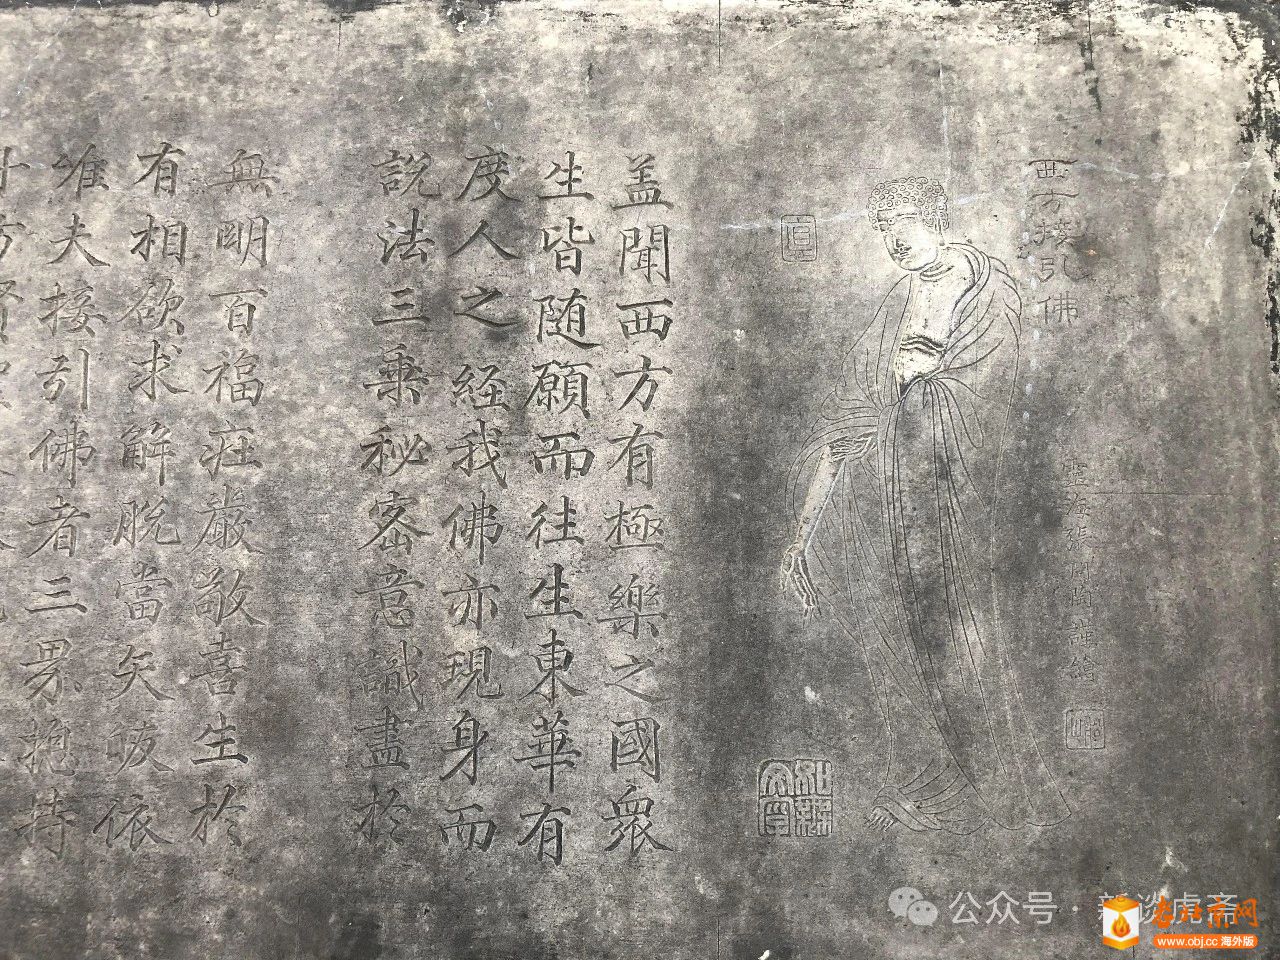 西方接引佛
雲海張開閶謹繪
盖聞西方有極樂之國衆
生皆随願而往生東華有
度人之經我佛亦現身而
說法三乘秘密意識盡於
無明百福庄嚴敬喜生於
有相欲求解脫當矢皈依
唯夫接引佛者三界抱持
公众号·新谈虎斋
老北京网
www.obj.cc 海外版